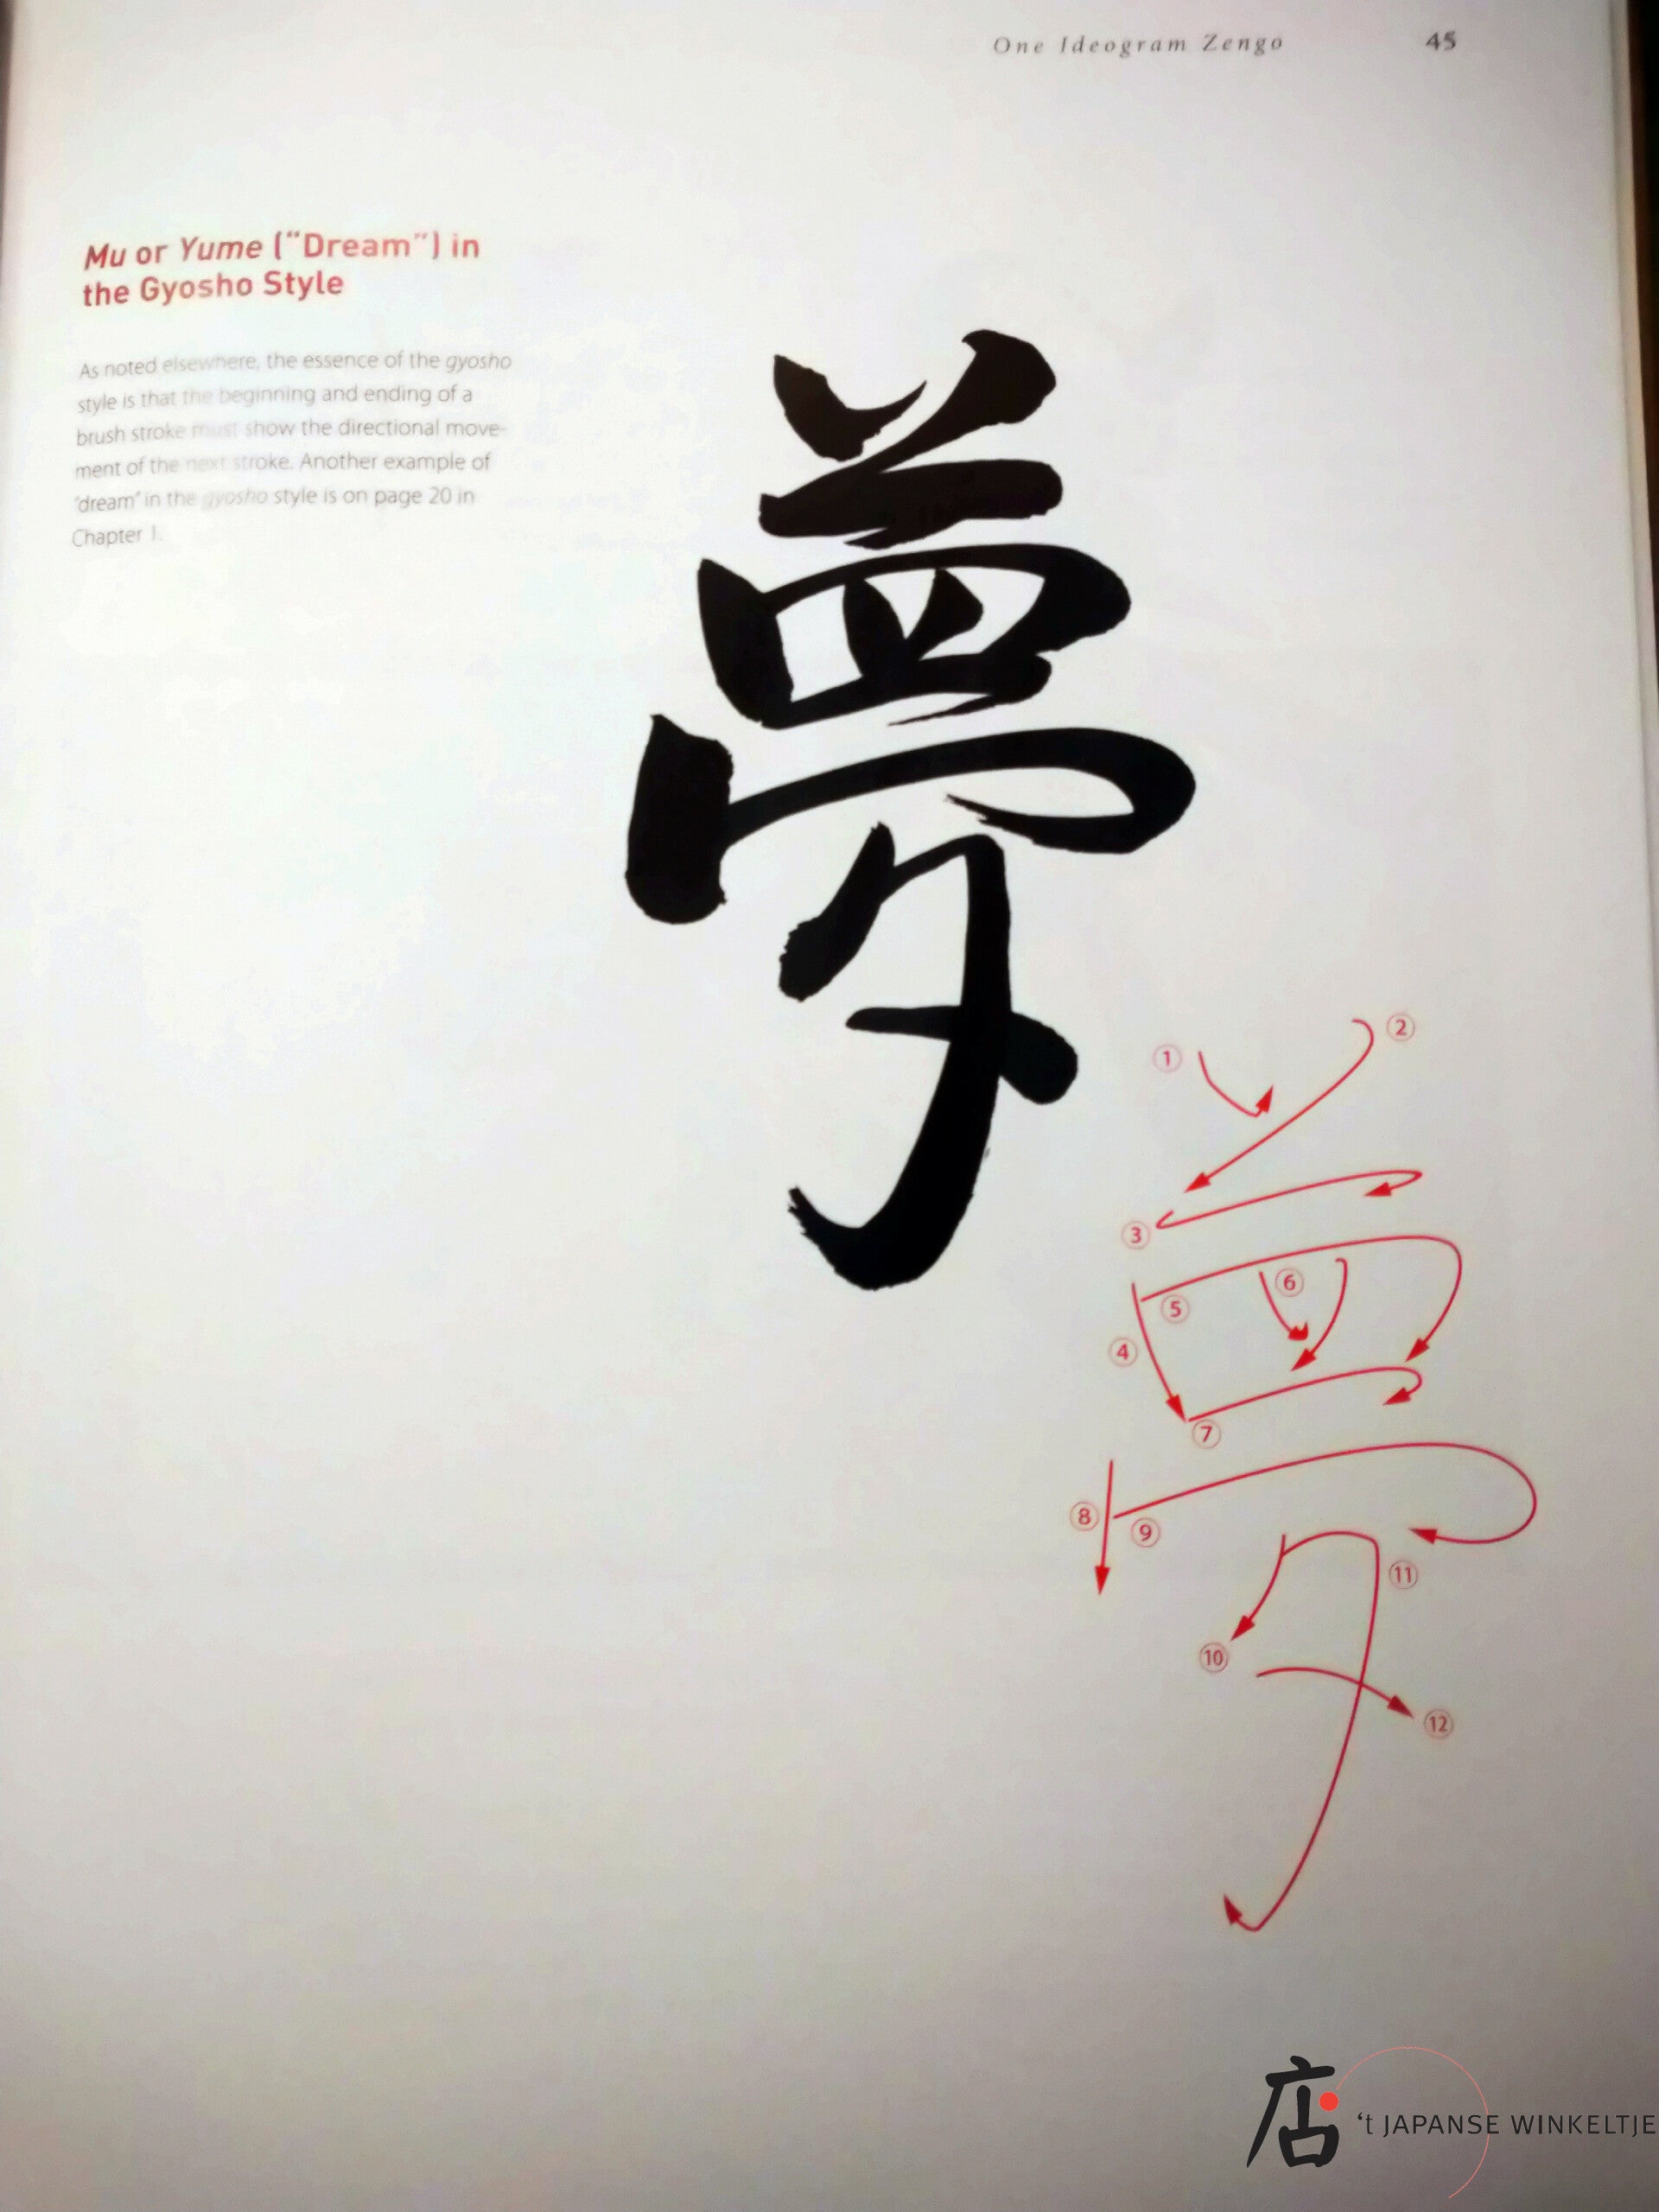 One Ideogram Zengo 45
Mu or Yume (“Dream”) in
the Gyosho Style
As noted elsewhere, the essence of the gyosho
style is that the beginning and ending of a
brush stroke must show the directional move-
ment of the next stroke. Another example of
“dream” in the gyosho style is on page 20 in
Chapter 1.
夢
①
②
③
④
⑤
⑥
⑦
⑧
⑨
⑩
⑪
⑫
店
‘t JAPANSE WINKELTJE